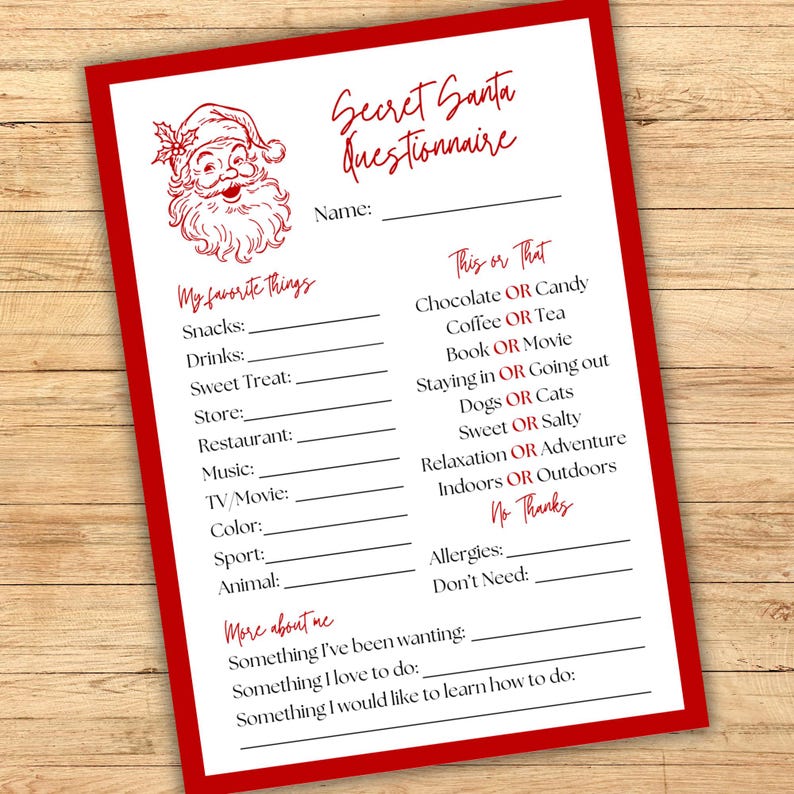 Secret Santa
Questionnaire
Name:
My favorite things
Snacks:
Drinks:
Sweet Treat:
Store:
Restaurant:
Music:
TV/Movie:
Color:
Sport:
Animal:
This or That
Chocolate OR Candy
Coffee OR Tea
Book OR Movie
Staying in OR Going out
Dogs OR Cats
Sweet OR Salty
Relaxation OR Adventure
Indoors OR Outdoors
No Thanks
Allergies:
Don't Need:
More about me
Something I've been wanting:
Something I love to do:
Something I would like to learn how to do: